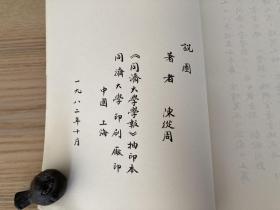 说園
著者 陳從周
《同濟大學學報》抽印本
同濟大學印刷廠印
中國 上海
一九八二年十月